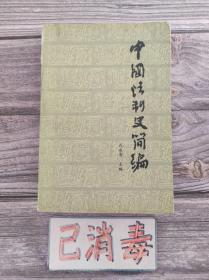 中国法制史简编
主编
已消毒